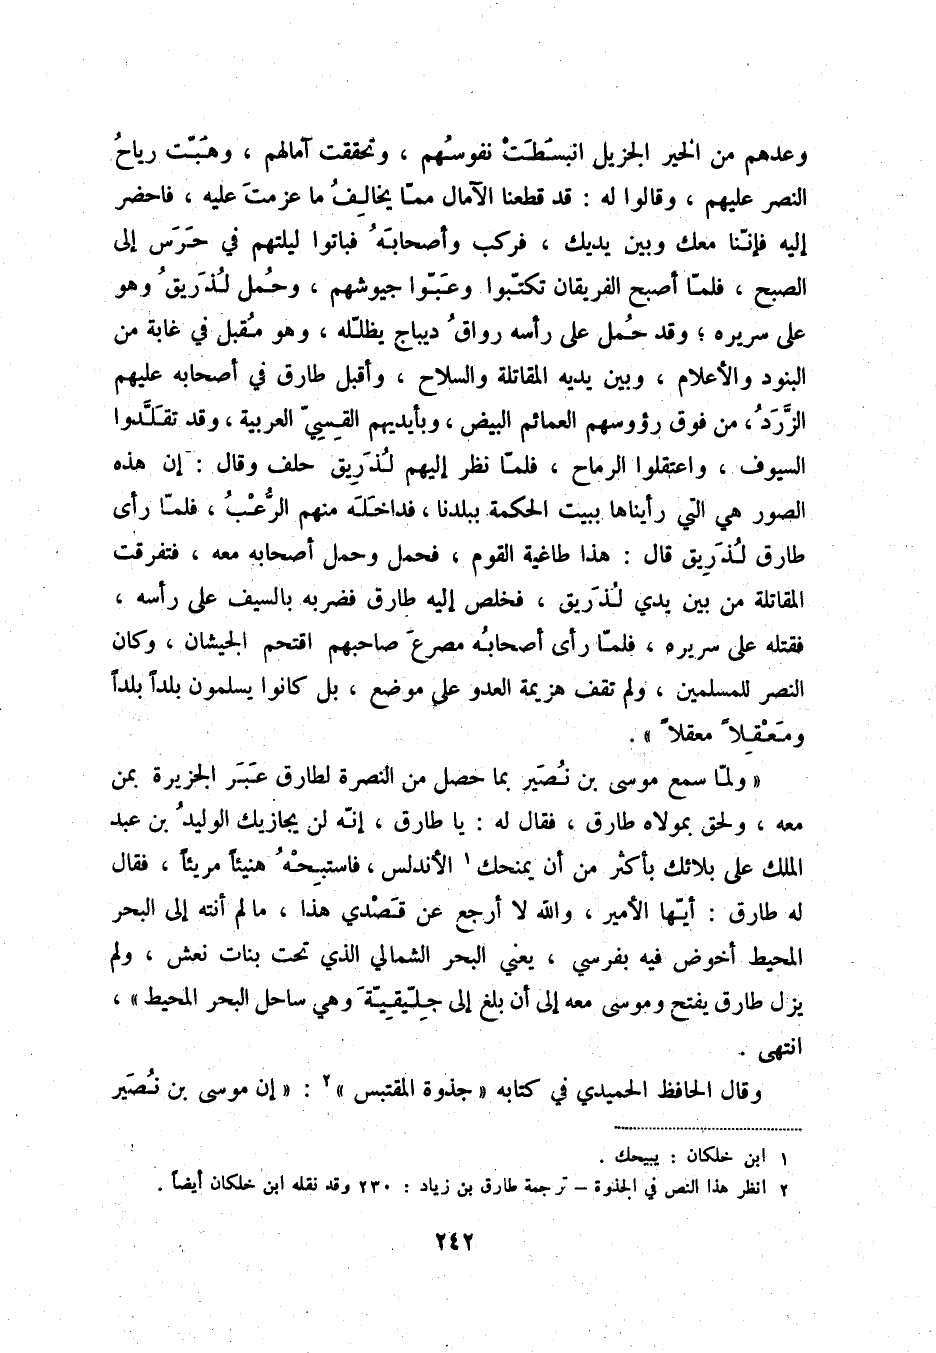 وعدهم من الخير الجزيل انبسَطَتْ نفوسُهم ، وتحققت آمالهم ، وهَبَّت رياحُ
النصر عليهم ، وقالوا له : قد قطعنا الآمال ممّا يخالفُ ما عزمتَ عليه ، فاحضر
إليه فإنّنا معك وبين يديك ، فركب وأصحابَهُ فباتوا ليلتهم في حَرَس إلى
الصبح ، فلمّا أصبح الفريقان تكتّبوا وعَبّوا جيوشهم ، وحُمل لُذَريقُ وهو
على سريره ؛ وقد حُمل على رأسه رواقُ ديباج يظلّله ، وهو مُقبل في غابة من
البنود والأعلام ، وبين يديه المقاتلة والسلاح ، وأقبل طارق في أصحابه عليهم
الزَّرَدُ ، من فوق رؤوسهم العمائم البيض ، وبأيديهم القِسِيّ العربية ، وقد تقَلَّدوا
السيوف ، واعتقلوا الرماح ، فلمّا نظر إليهم لُذَرِيق حلف وقال : إن هذه
الصور هي التي رأيناها ببيت الحكمة ببلدنا ، فداخَلَه منهم الرُّعْبُ ، فلمّا رأى
طارق لُذَرِيق قال : هذا طاغية القوم ، فحمل وحمل أصحابه معه ، فتفرقت
المقاتلة من بين يدي لُذَريق ، فخلص إليه طارق فضربه بالسيف على رأسه ،
فقتله على سريره ، فلمّا رأى أصحابُه مصرعَ صاحبهم اقتحم الجيشان ، وكان
النصر للمسلمين ، ولم تقف هزيمة العدو على موضع ، بل كانوا يسلمون بلداً بلداً
ومَعْقِلاً معقلاً » .
« ولمّا سمع موسى بن نُصَير بما حصل من النصرة لطارق عَبَر الجزيرة بمن
معه ، ولحق بمولاه طارق ، فقال له : يا طارق ، إنّه لن يجازيك الوليدُ بن عبد
الملك على بلائك بأكثر من أن يمنحك ١ الأندلس ، فاستبِحْهُ هنيئاً مريئاً ، فقال
له طارق : أيّها الأمير ، والله لا أرجع عن قَصْدي هذا ، ما لم أنته إلى البحر
المحيط أخوض فيه بفرسي ، يعني البحر الشمالي الذي تحت بنات نعش ، ولم
يزل طارق يفتح وموسى معه إلى أن بلغ إلى جِلّيقِيّةَ وهي ساحل البحر المحيط » ،
انتهى .
وقال الحافظ الحميدي في كتابه « جذوة المقتبس » ٢ : « إن موسى بن نُصَير
١ ابن خلكان : يبيحك .
٢ انظر هذا النص في الجذوة – ترجمة طارق بن زياد : ٢٣٠ وقد نقله ابن خلكان أيضاً .
٢٤٢